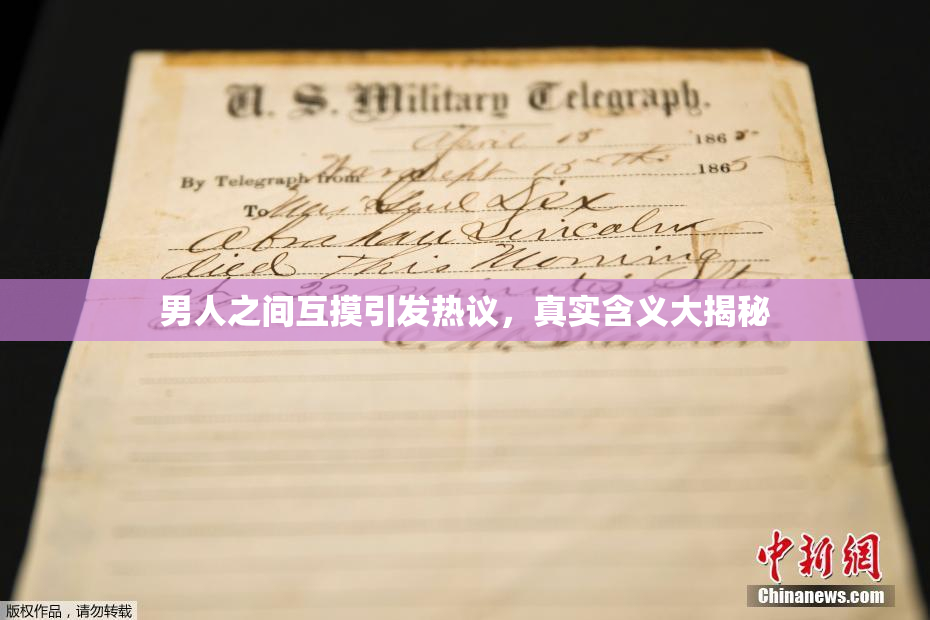 U. S. Military Telegraph.
April 15 1865
By Telegraph from War Dept 15th 1865
To Maj Genl Dix
Abraham Lincoln
died This Morning
at 22 minutes after
男人之间互摸引发热议，真实含义大揭秘
E. M. Stanton
中新网
Chinanews.com
版权作品，请勿转载